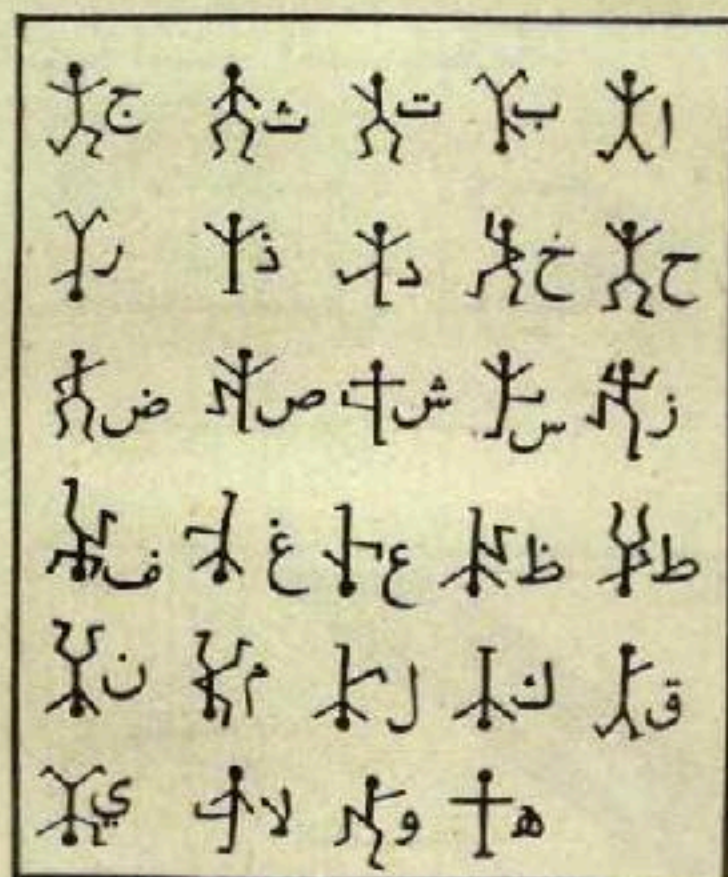 ا ب ت ث ج
ح خ د ذ ر
ز س ش ص ض
ط ظ ع غ ف
ق ك ل م ن
ه و لا ي